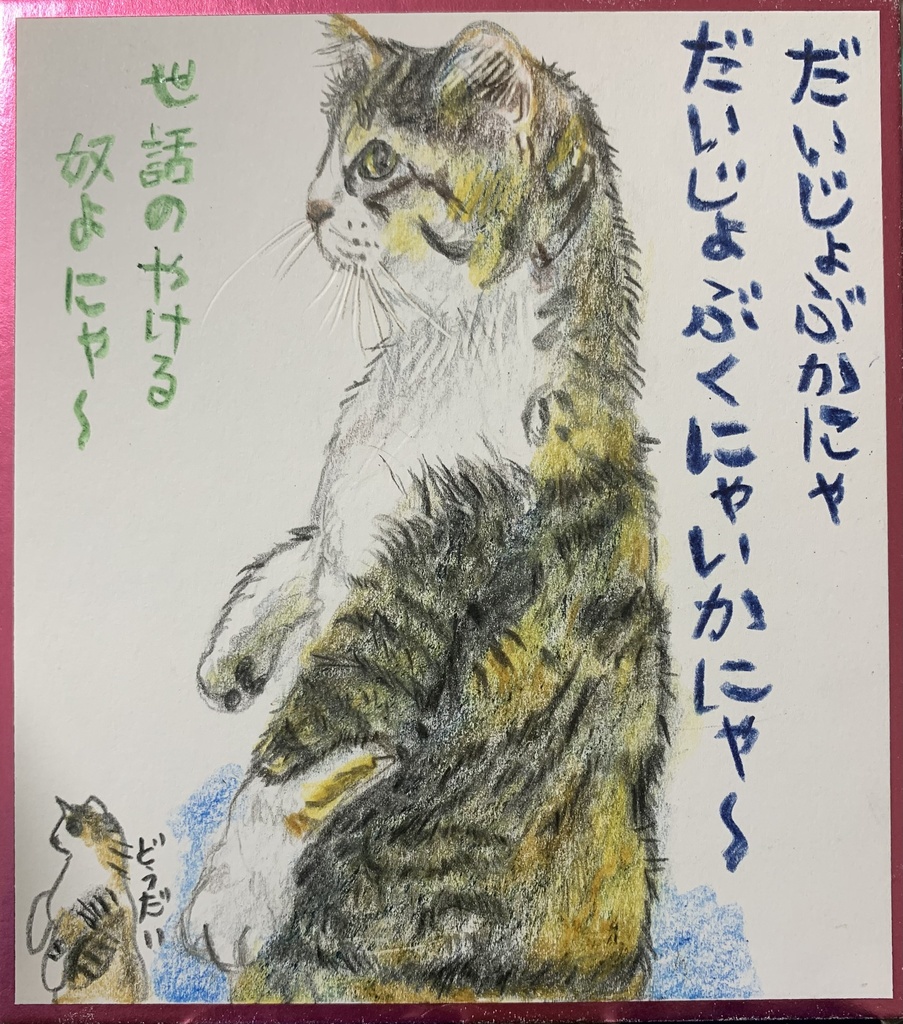 だいじょぶかにゃ
だいじょぶくにゃいかにゃ～
世話のやける
奴よにゃ～
どうだい